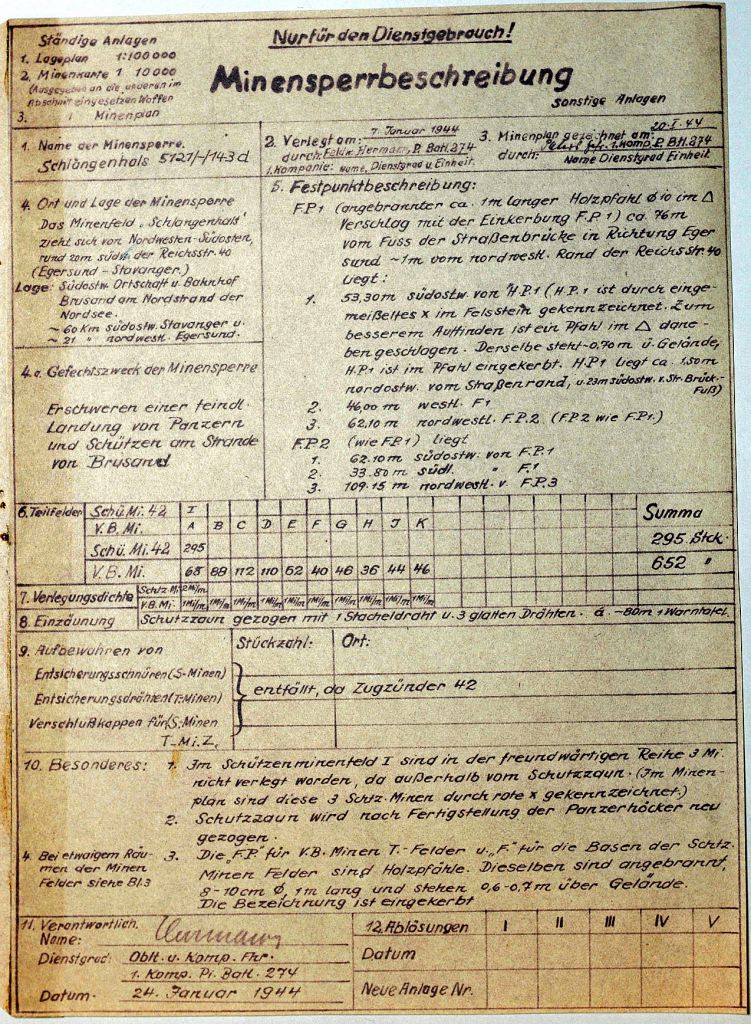 Ständige Anlagen
1. Lageplan 1:100000
2. Minenkarte 1 10000
(Ausgegeben an die anderen im
Abschnitt eingesetzten Waffen
3. 1 Minenplan
Nur für den Dienstgebrauch!
Minensperrbeschreibung
sonstige Anlagen
1. Name der Minensperre.
Schlangenhals 5121/-/143 d
2. Verlegt am: 7. Januar 1944
durch: Feldw. Hermann, P. Batl. 274
1. Kompanie: Name, Dienstgrad u. Einheit.
3. Minenplan gezeichnet am: 20.I.44
durch: 1. Komp. P. Batl. 274
Name Dienstgrad Einheit
4. Ort und Lage der Minensperre
Das Minenfeld "Schlangenhals"
zieht sich von Nordwesten-Südosten,
rund 20m südw. der Reichsstr. 40
(Egersund - Stavanger.)
Lage: Südostw. Ortschaft u. Bahnhof
Brusand am Nordstrand der
Nordsee.
~ 60 Km südostw. Stavanger u.
~ 21 " nordwestl. Egersund.
4.a. Gefechtszweck der Minensperre
Erschweren einer feindl.
Landung von Panzern
und Schützen am Strande
von Brusand
5. Festpunktbeschreibung:
F.P.1 (angebrannter ca. 1m langer Holzpfahl ø 10 im △
Verschlag mit der Einkerbung F.P. 1) ca. 76m
vom Fuss der Straßenbrücke in Richtung Eger
sund ~ 1m vom nordwestl. Rand der Reichsstr. 40
liegt:
1. 53,30m südostw. von H.P.1 (H.P.1 ist durch einge-
meißeltes x im Felsstein gekennzeichnet. Zum
besserem Auffinden ist ein Pfahl im △ dane-
ben geschlagen. Derselbe steht ~ 0,70m ü. Gelände,
H.P.1 ist im Pfahl eingekerbt. H.P.1 liegt ca. 1,50m
nordostw. vom Straßenrand, u. 23m südostw. v. Str. Brück.-
Fuß)
2. 46,00m westl. F1
3. 62,10m nordwestl. F.P.2 (F.P.2 wie F.P.1.)
F.P.2 (wie F.P.1) liegt
1. 62.10m südostw. von F.P.1
2. 33.80m südl. " F.1
3. 109.15m nordwestl. v. F.P.3
6. Teilfelder Schü. Mi. 42 I Summa
V.B. Mi. A B C D E F G H J K
Schü. Mi. 42 295 295 Stck.
V.B. Mi. 65 89 112 110 62 40 46 36 44 46 652 "
7. Verlegungsdichte Schtz. M. 2 Mi/m
V.B. Mi. 1Mi/m 1Mi/m 1Mi/m 1Mi/m 1Mi/m 1Mi/m 1Mi/m 1Mi/m 1Mi/m 1Mi/m
8. Einzäunung Schutzzaun gezogen mit 1 Stacheldraht u. 3 glatten Drähten. á ~80m 1 Warntafel.
9. Aufbewahren von Stückzahl: Ort:
Entsicherungsschnüren (S-Minen)
Entsicherungsdrähten (T-Minen) entfällt, da Zugzünder 42
Verschlußkappen für (S-Minen
T-Mi.Z.
10. Besonderes: 1. Jm Schützenminenfeld I sind in der freundwärtigen Reihe 3 Mi.
nicht verlegt worden, da außerhalb vom Schutzzaun. (Jm Minen-
plan sind diese 3 Schtz. Minen durch rote x gekennzeichnet.)
2. Schutzzaun wird nach Fertigstellung der Panzerhöcker neu
gezogen.
4. Bei etwaigem Räu-
men der Minen
Felder siehe Bl.3
3. Die "F.P." für V.B. Minen T.-Felder u. "F." für die Basen der Schtz.
Minen Felder sind Holzpfähle. Dieselben sind angebrannt,
8-10cm ø, 1m lang und stehen 0,6-0,7m über Gelände.
Die Bezeichnung ist eingekerbt
11. Verantwortlich.
Name:
Dienstgrad: Oblt. u. Komp. Fhr.
1. Komp. Pi. Batl. 274
Datum. 24. Januar 1944
12. Ablösungen I II III IV V
Datum
Neue Anlage Nr.